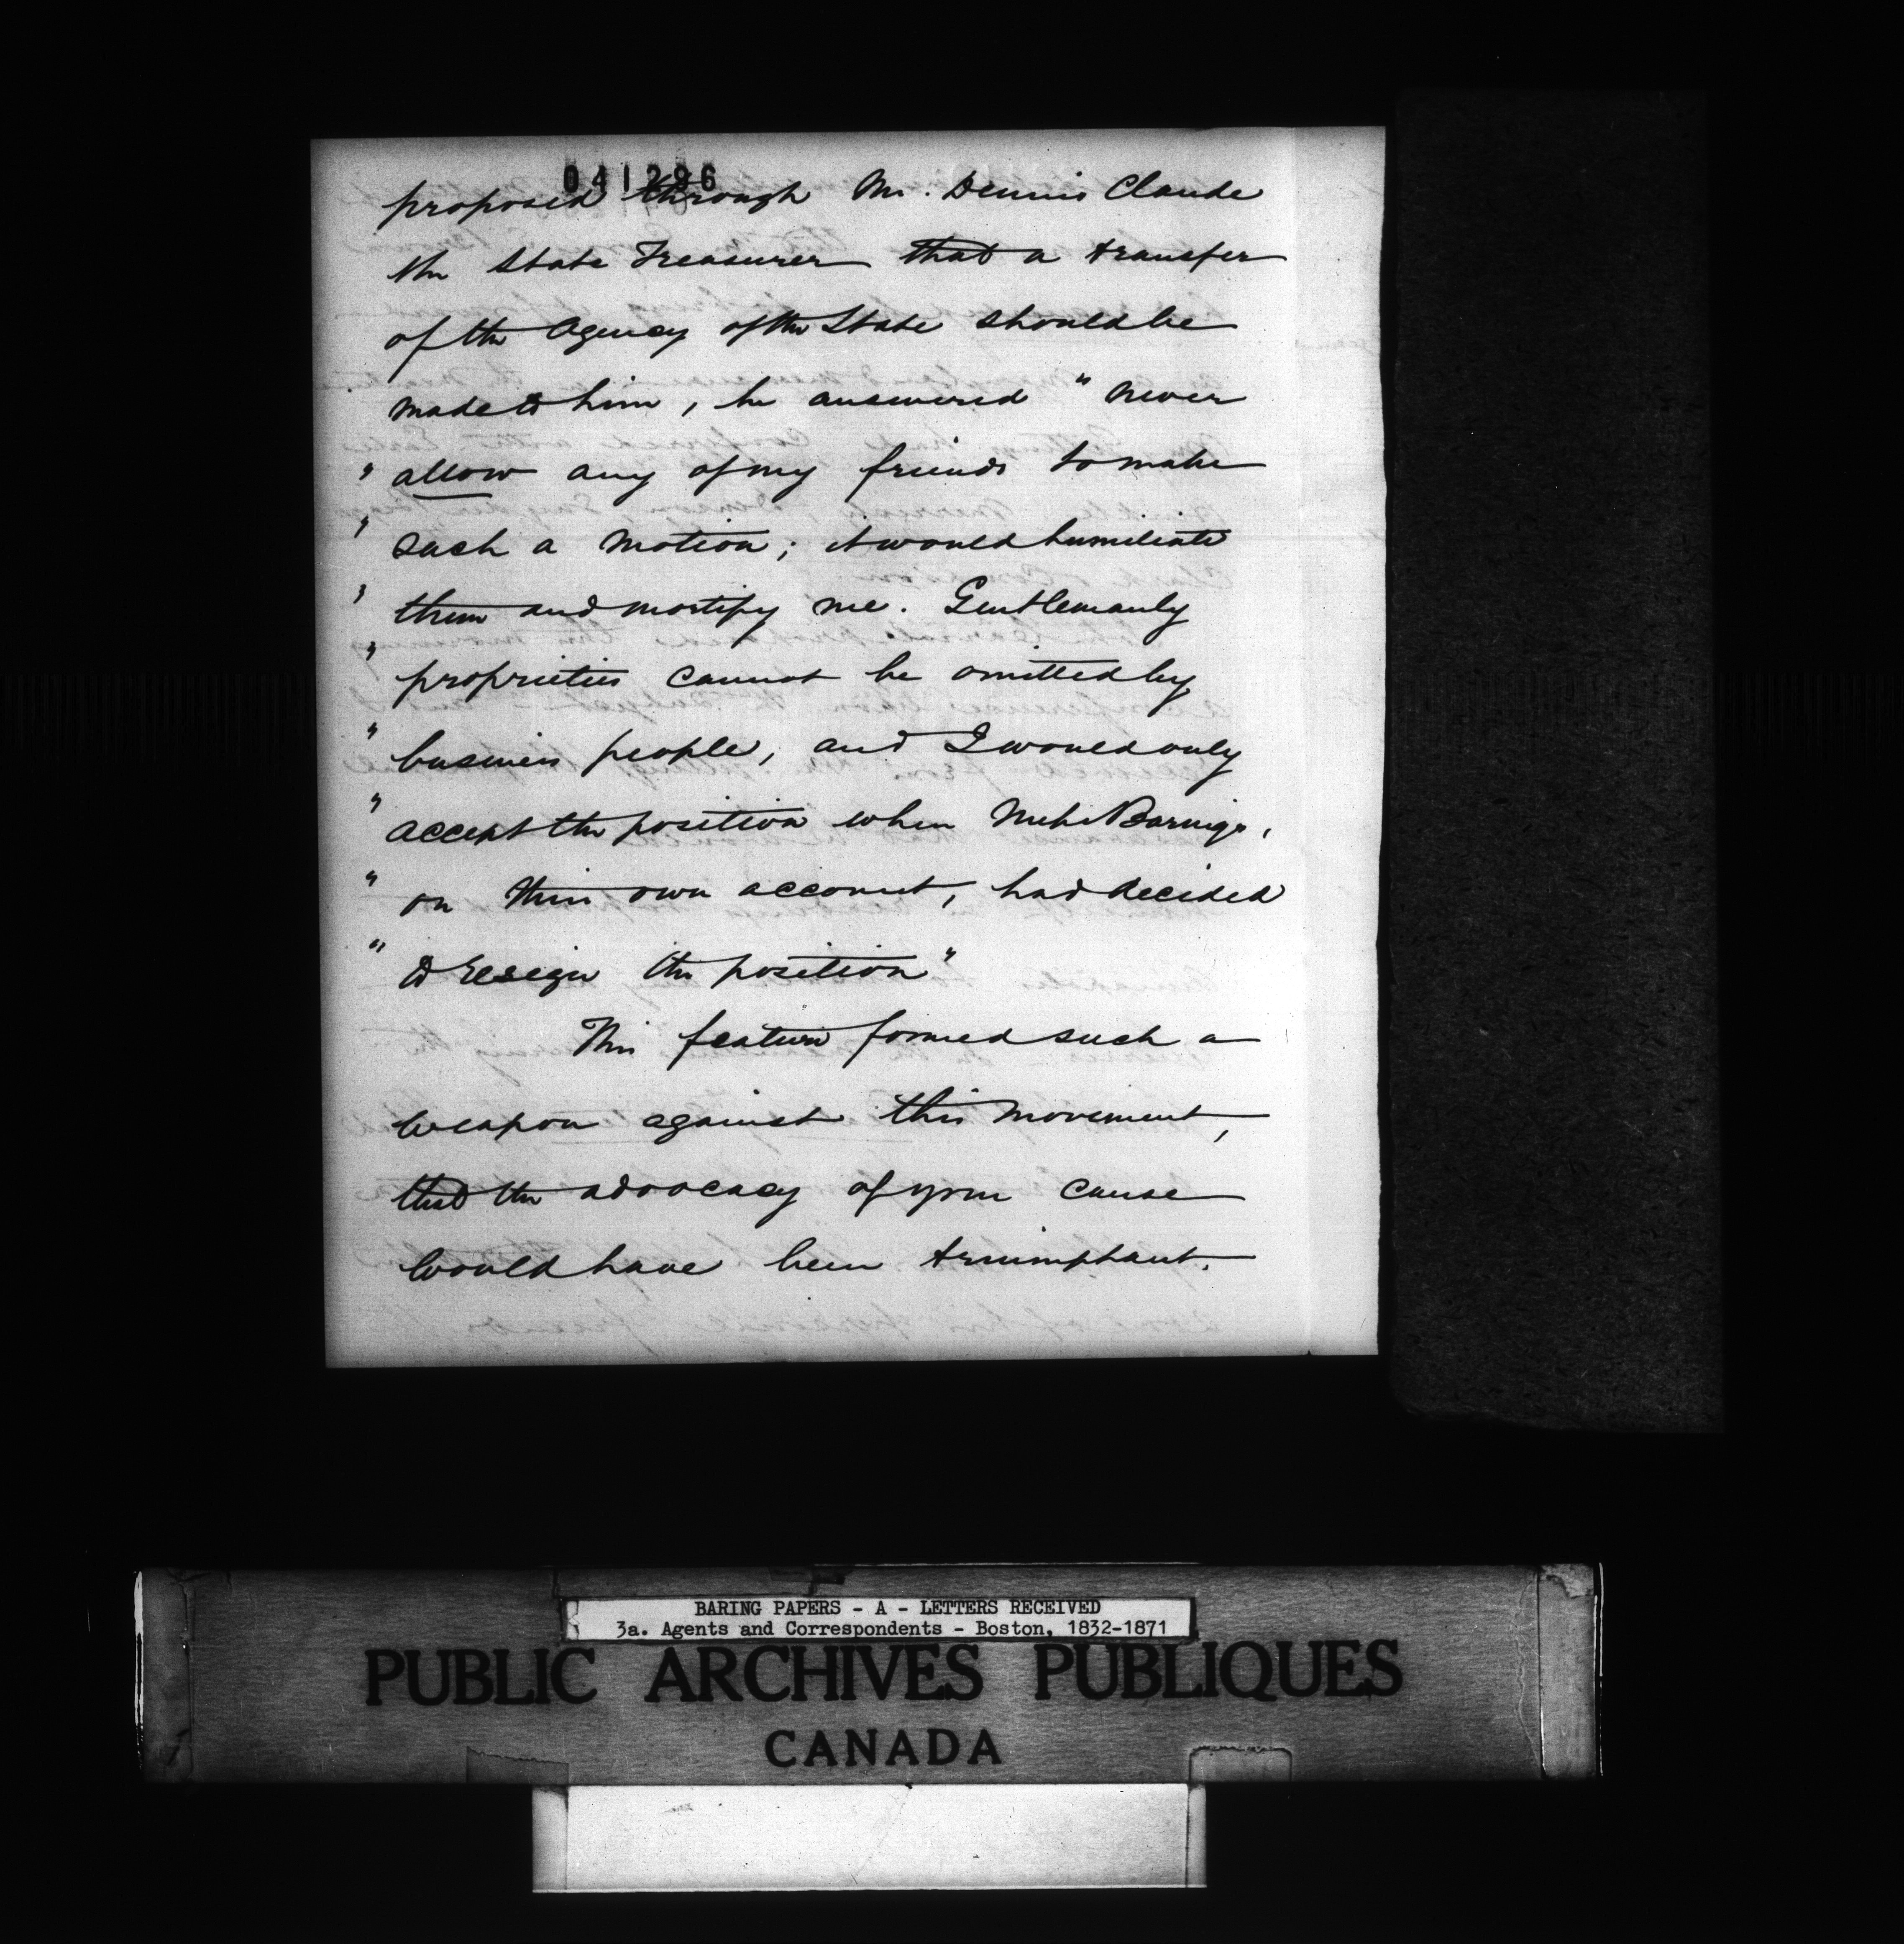 041296
proposed through Mr. Dennis Claude
the State Treasurer that a transfer
of the Agency of the State should be
made to him, he answered "never
" allow any of my friends to make
" such a motion; it would humiliate
" them and mortify me. Gentlemanly
" proprieties cannot be omitted by
" business people, and I would only
" accept the position when Barings,
" on their own account, had decided
" to resign the position"
This feature formed such a
weapon against this movement,
that the advocacy of your cause
would have been triumphant.
BARING PAPERS - A - LETTERS RECEIVED
3a. Agents and Correspondents - Boston, 1832-1871
PUBLIC ARCHIVES PUBLIQUES
CANADA